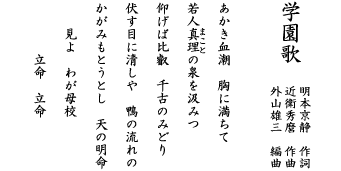 学園歌
明本京静 作詞
近衛秀麿 作曲
外山雄三 編曲
あかき血潮 胸に満ちて
若人真理の泉を汲みつ
まこと
仰げば比叡 千古のみどり
伏す目に清しや 鴨の流れの
かがみもとうとし 天の明命
見よ わが母校
立命 立命